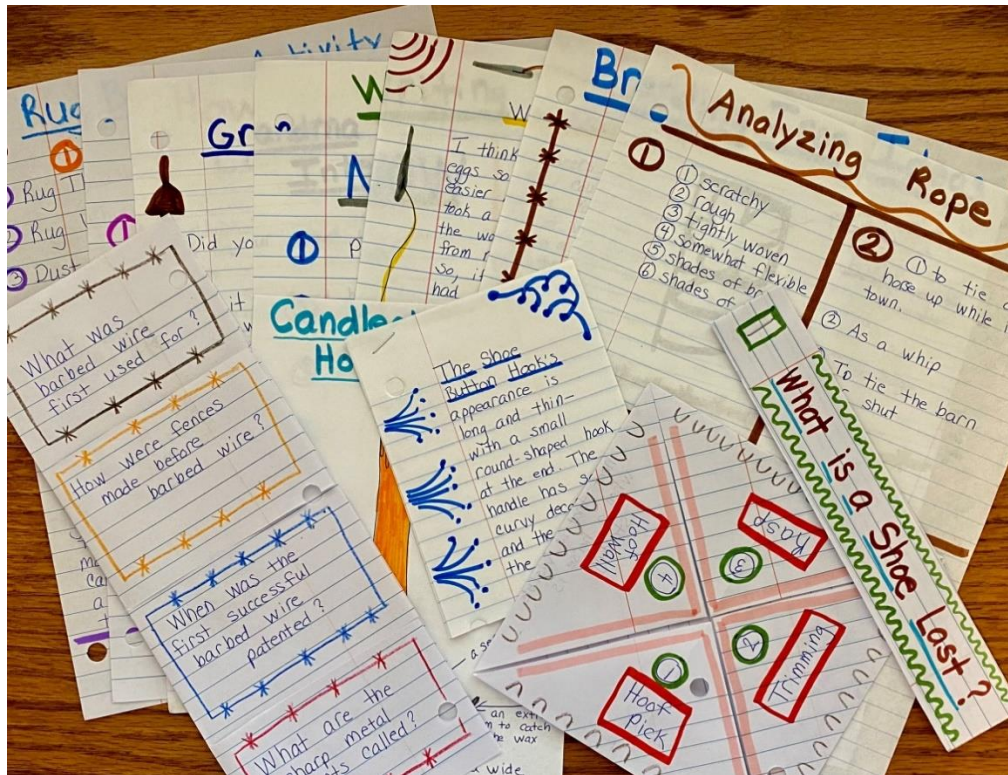 Activity
Rug
①
Rug
Rug
③ Dust
Gr
①
Did yo
it
W
N
①
W
I think
eggs so
easier
took a
the wo
from
so, it
had
Br
Analyzing
Rope
①
① scratchy
② rough
③ tightly woven
④ somewhat flexible
⑤ shades of br
⑥ shades of
②
① to tie
hose up while
town.
② As a whip
To tie the barn
shut
What was
barbed wire
first used for?
How were fences
made before
barbed wire?
When was the
first successful
barbed wire
patented?
What are the
sharp metal
its called?
Candle
Ho
The Shoe
Button Hook's
appearance is
long and thin-
with a small
round-shaped hook
at the end. The
handle has s
curvy deco
and the
the
Hoof
Wall
④
Rasp
③
①
Hoof
Pick
②
Trimming
What is a Shoe Last?
a se
an ext
m to catch
he wax
wide